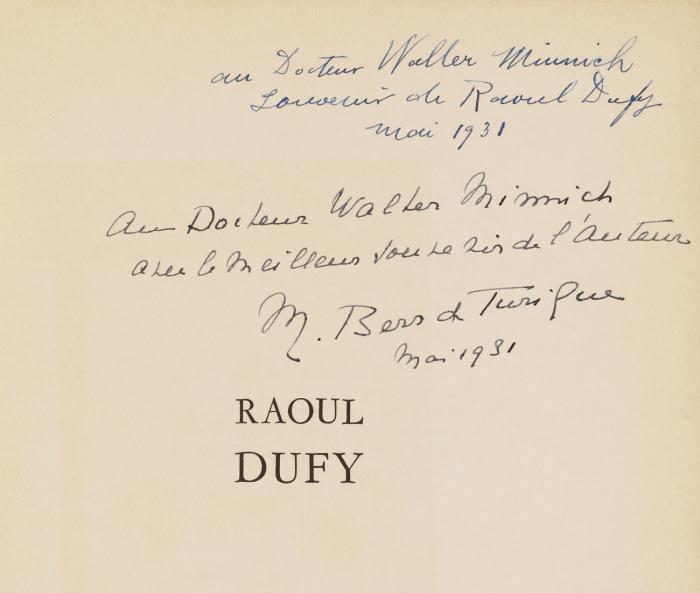 au Docteur Walter Minnich
Souvenir de Raoul Dufy
mai 1931
Au Docteur Walter Minnich
avec le meilleur souvenir de l'auteur
M. Berr de Turique
Mai 1931
RAOUL
DUFY